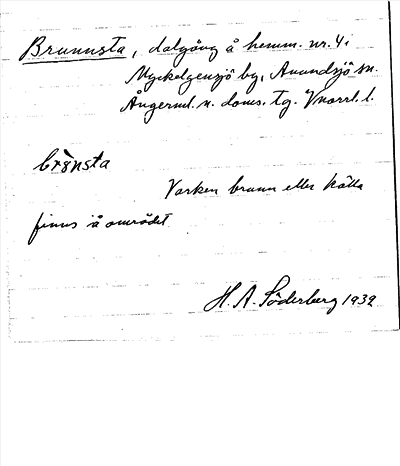 Brunnsta, dalgång å hemm. nr. 4 i
Myckelgensjö by, Anundsjö sn.
Ångerml. n. doms. tg. Vnorrl. l.
brɵ̀nsta
Varken brunn eller källa
finns i å området
H. A. Söderberg 1932